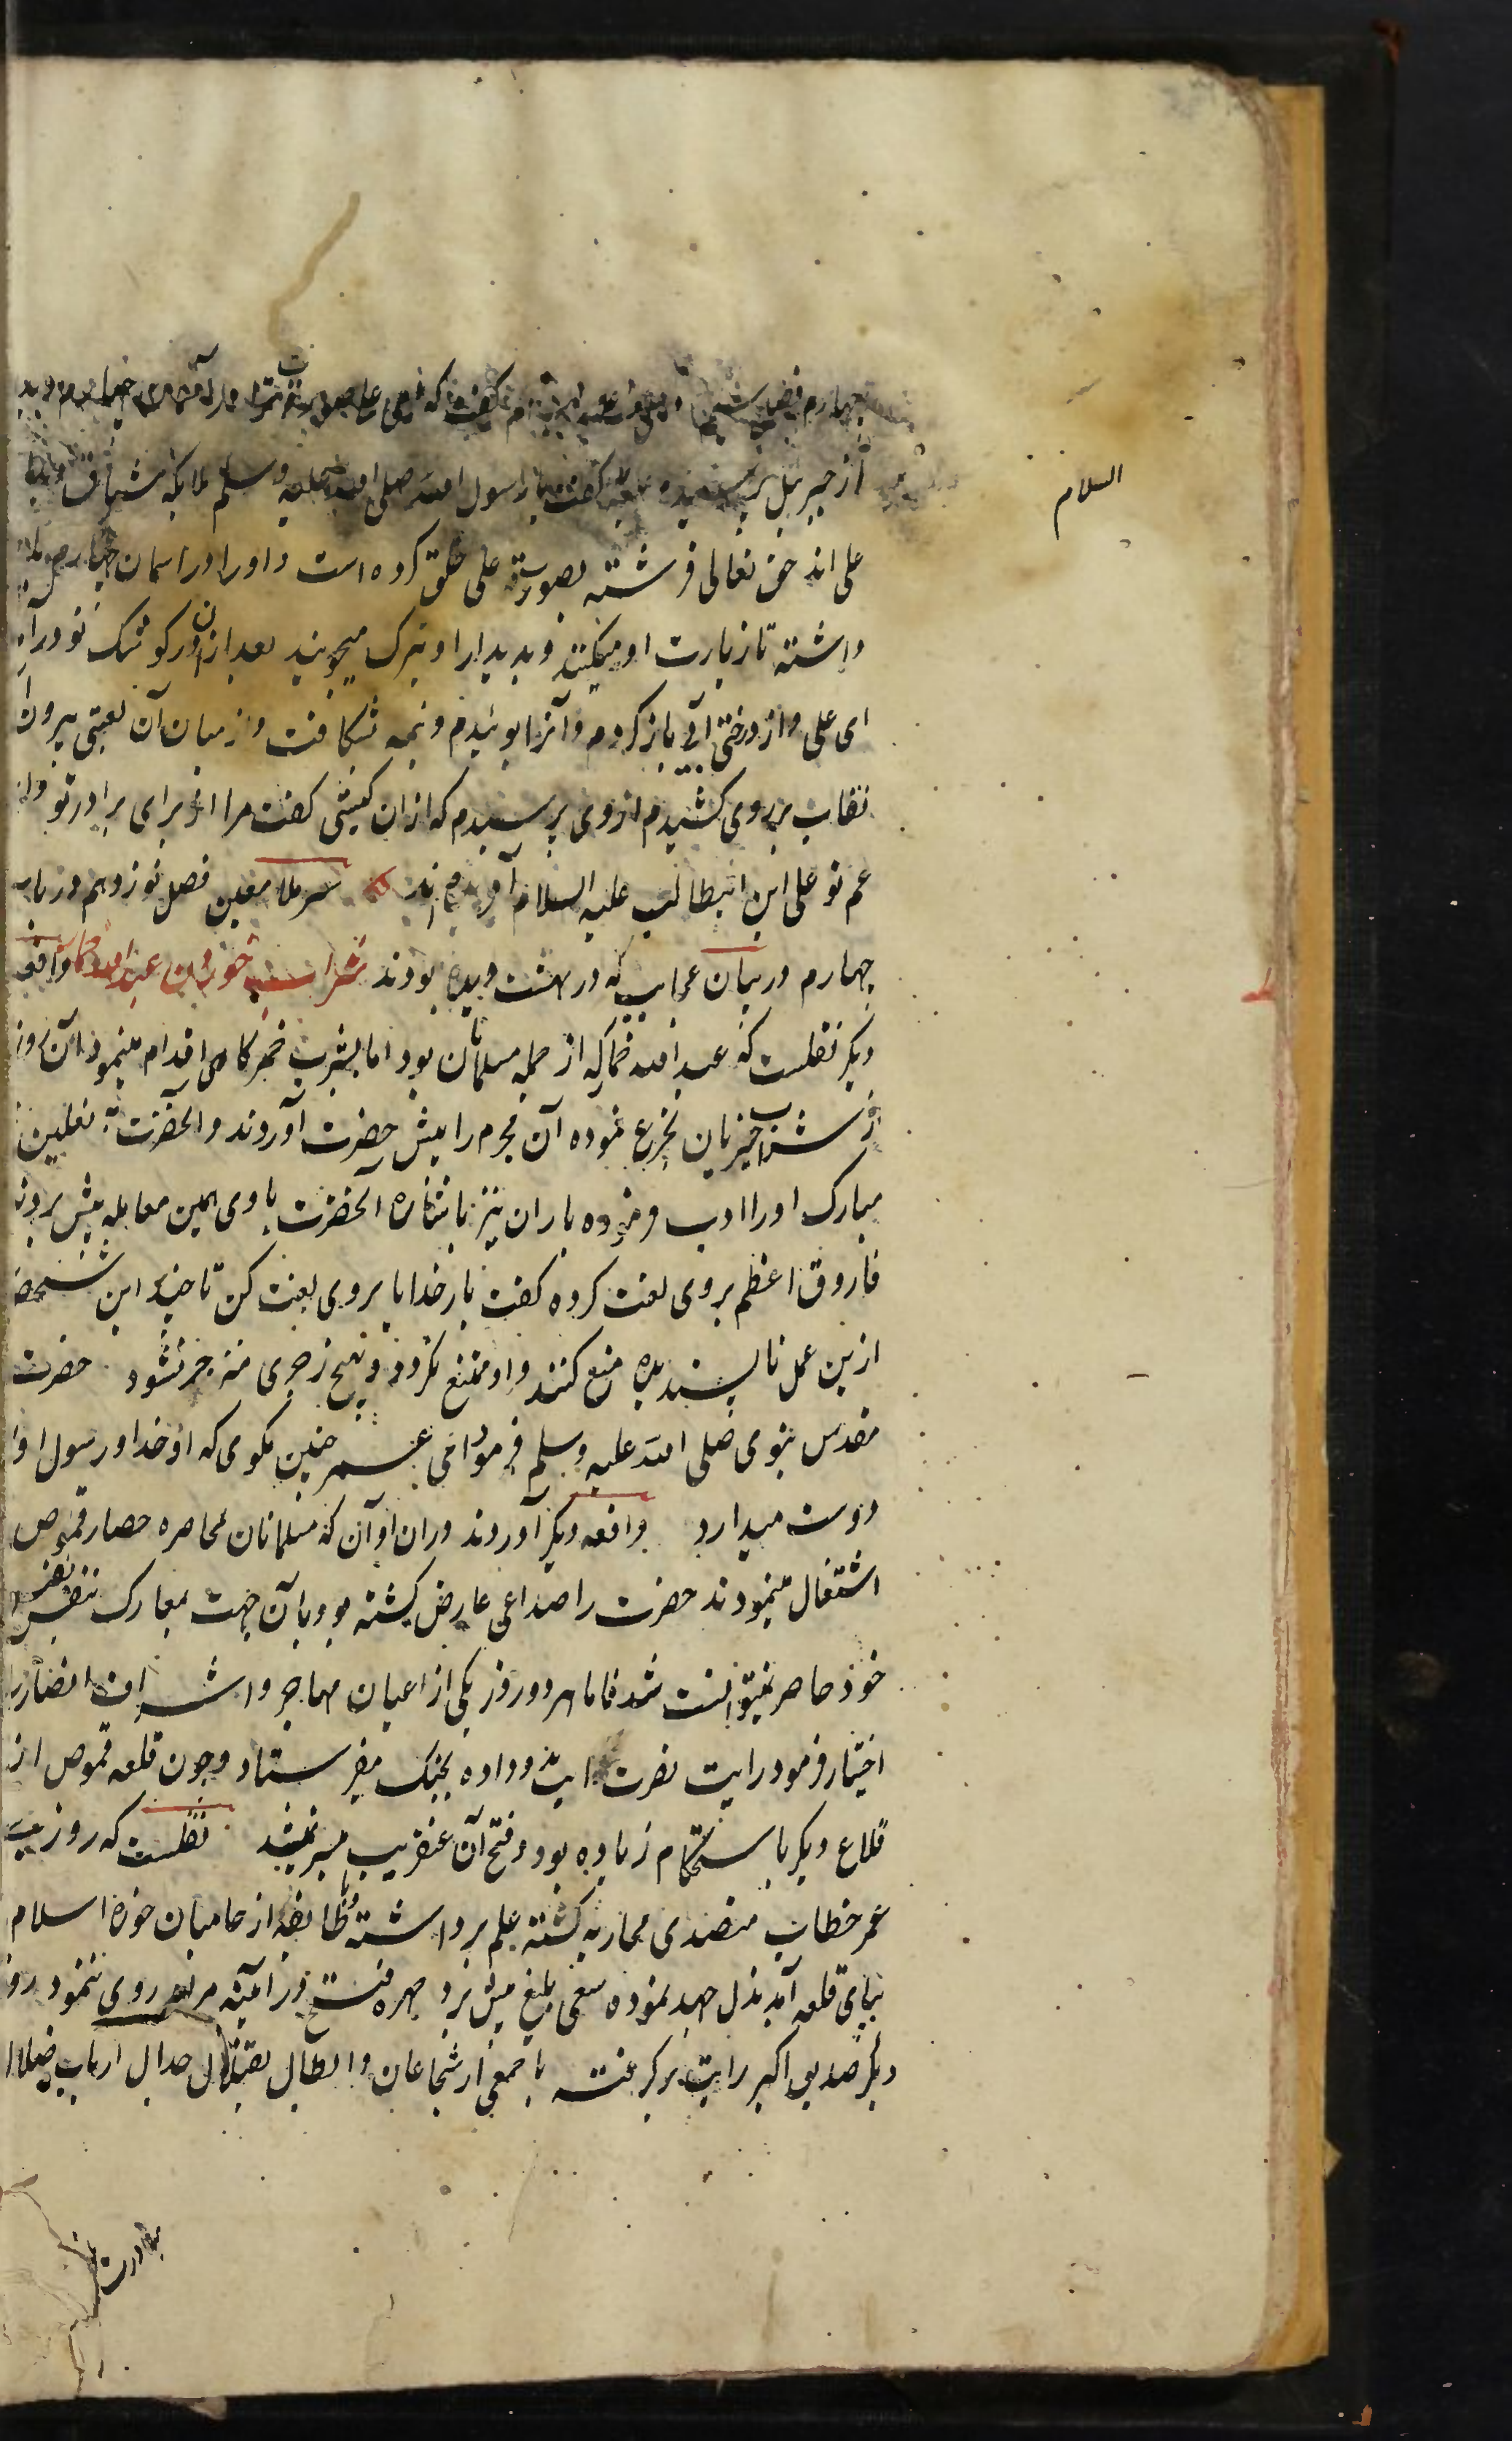 چهارم گفت که علی
از جبرئیل پرسیدم گفت یا رسول الله صلی الله علیه وسلم ملایکه مشتاق
علی اند حق تعالی فرشته بصورت علی خلق کرده است و او را در آسمان چهارم
داشته تا زیارت او میکنند و بدیدار او تبرک میجویند بعد ازان در کوشک تو درآمدم
ای علی و از درختی آبی باز کردم و آنرا بوئیدم و نیمه شکافت و از میان آن لعبتی بیرون
نقاب بر روی کشیدم از وی پرسیدم که ازان کیستی گفت مرا از برای برادر تو و ابن
عم تو علی ابن ابیطالب علیه السلام آفریده اند سیر ملا معین فصل نوزدهم در باب
السلام
چهارم در بیان عجایب که در بهشت دیده بودند شراب خوردن عبد الله واقعه
دیگر نقلست که عبد الله خماکه از جمله مسلمانان بود اما بشرب خمر کاهی اقدام مینمود آن روز
از شراب خیزیان تجرع نموده آن مجرم را پیش حضرت آوردند و آنحضرت به نعلین
مبارک او را ادب فرموده یاران نیز باشاره آنحضرت با وی همین معامله پیش بردند
فاروق اعظم بر وی لعنت کرده گفت بار خدایا بر وی لعنت کن تا چند این شخص
ازین عمل ناپسندیده منع کنند و او ممتنع نکردد و بهیچ زجری منزجر نشود حضرت
مقدس نبوی صلی الله علیه وسلم فرمود ای عمر چنین مکوی که او خدا و رسول او را
دوست میدارد واقعه دیگر آوردند دران اوآن که مسلمانان بمحاصره حصار قموص
اشتغال مینمودند حضرت را صداعی عارض کشته بود بآن جهت بمعارک بنفس نفیس
خود حاضر نمیتوانست شد فاما هر دو روز یکی از اعیان مهاجر و اشراف انصار را
اختیار فرمود رایت نصرت آیت بدو داده بجنک میفرستاد و چون قلعه قموص از
قلاع دیگر باستحکام زیاده بود و فتح آن عنقریب میسر نمیشد نقلست که روزی
عمر خطاب متصدی محاربه کشته علم برداشته و با طایفه از حامیان حوزه اسلام
بپای قلعه آمد بذل جهد نموده سعی بلیغ پیش برد چهره فتح در آئینه مراد روی ننمود روز
دیگر صدیق اکبر رایت برکرفته با جمعی از شجاعان و ابطال بقتال و جدال ارباب ضلال
مبادرت